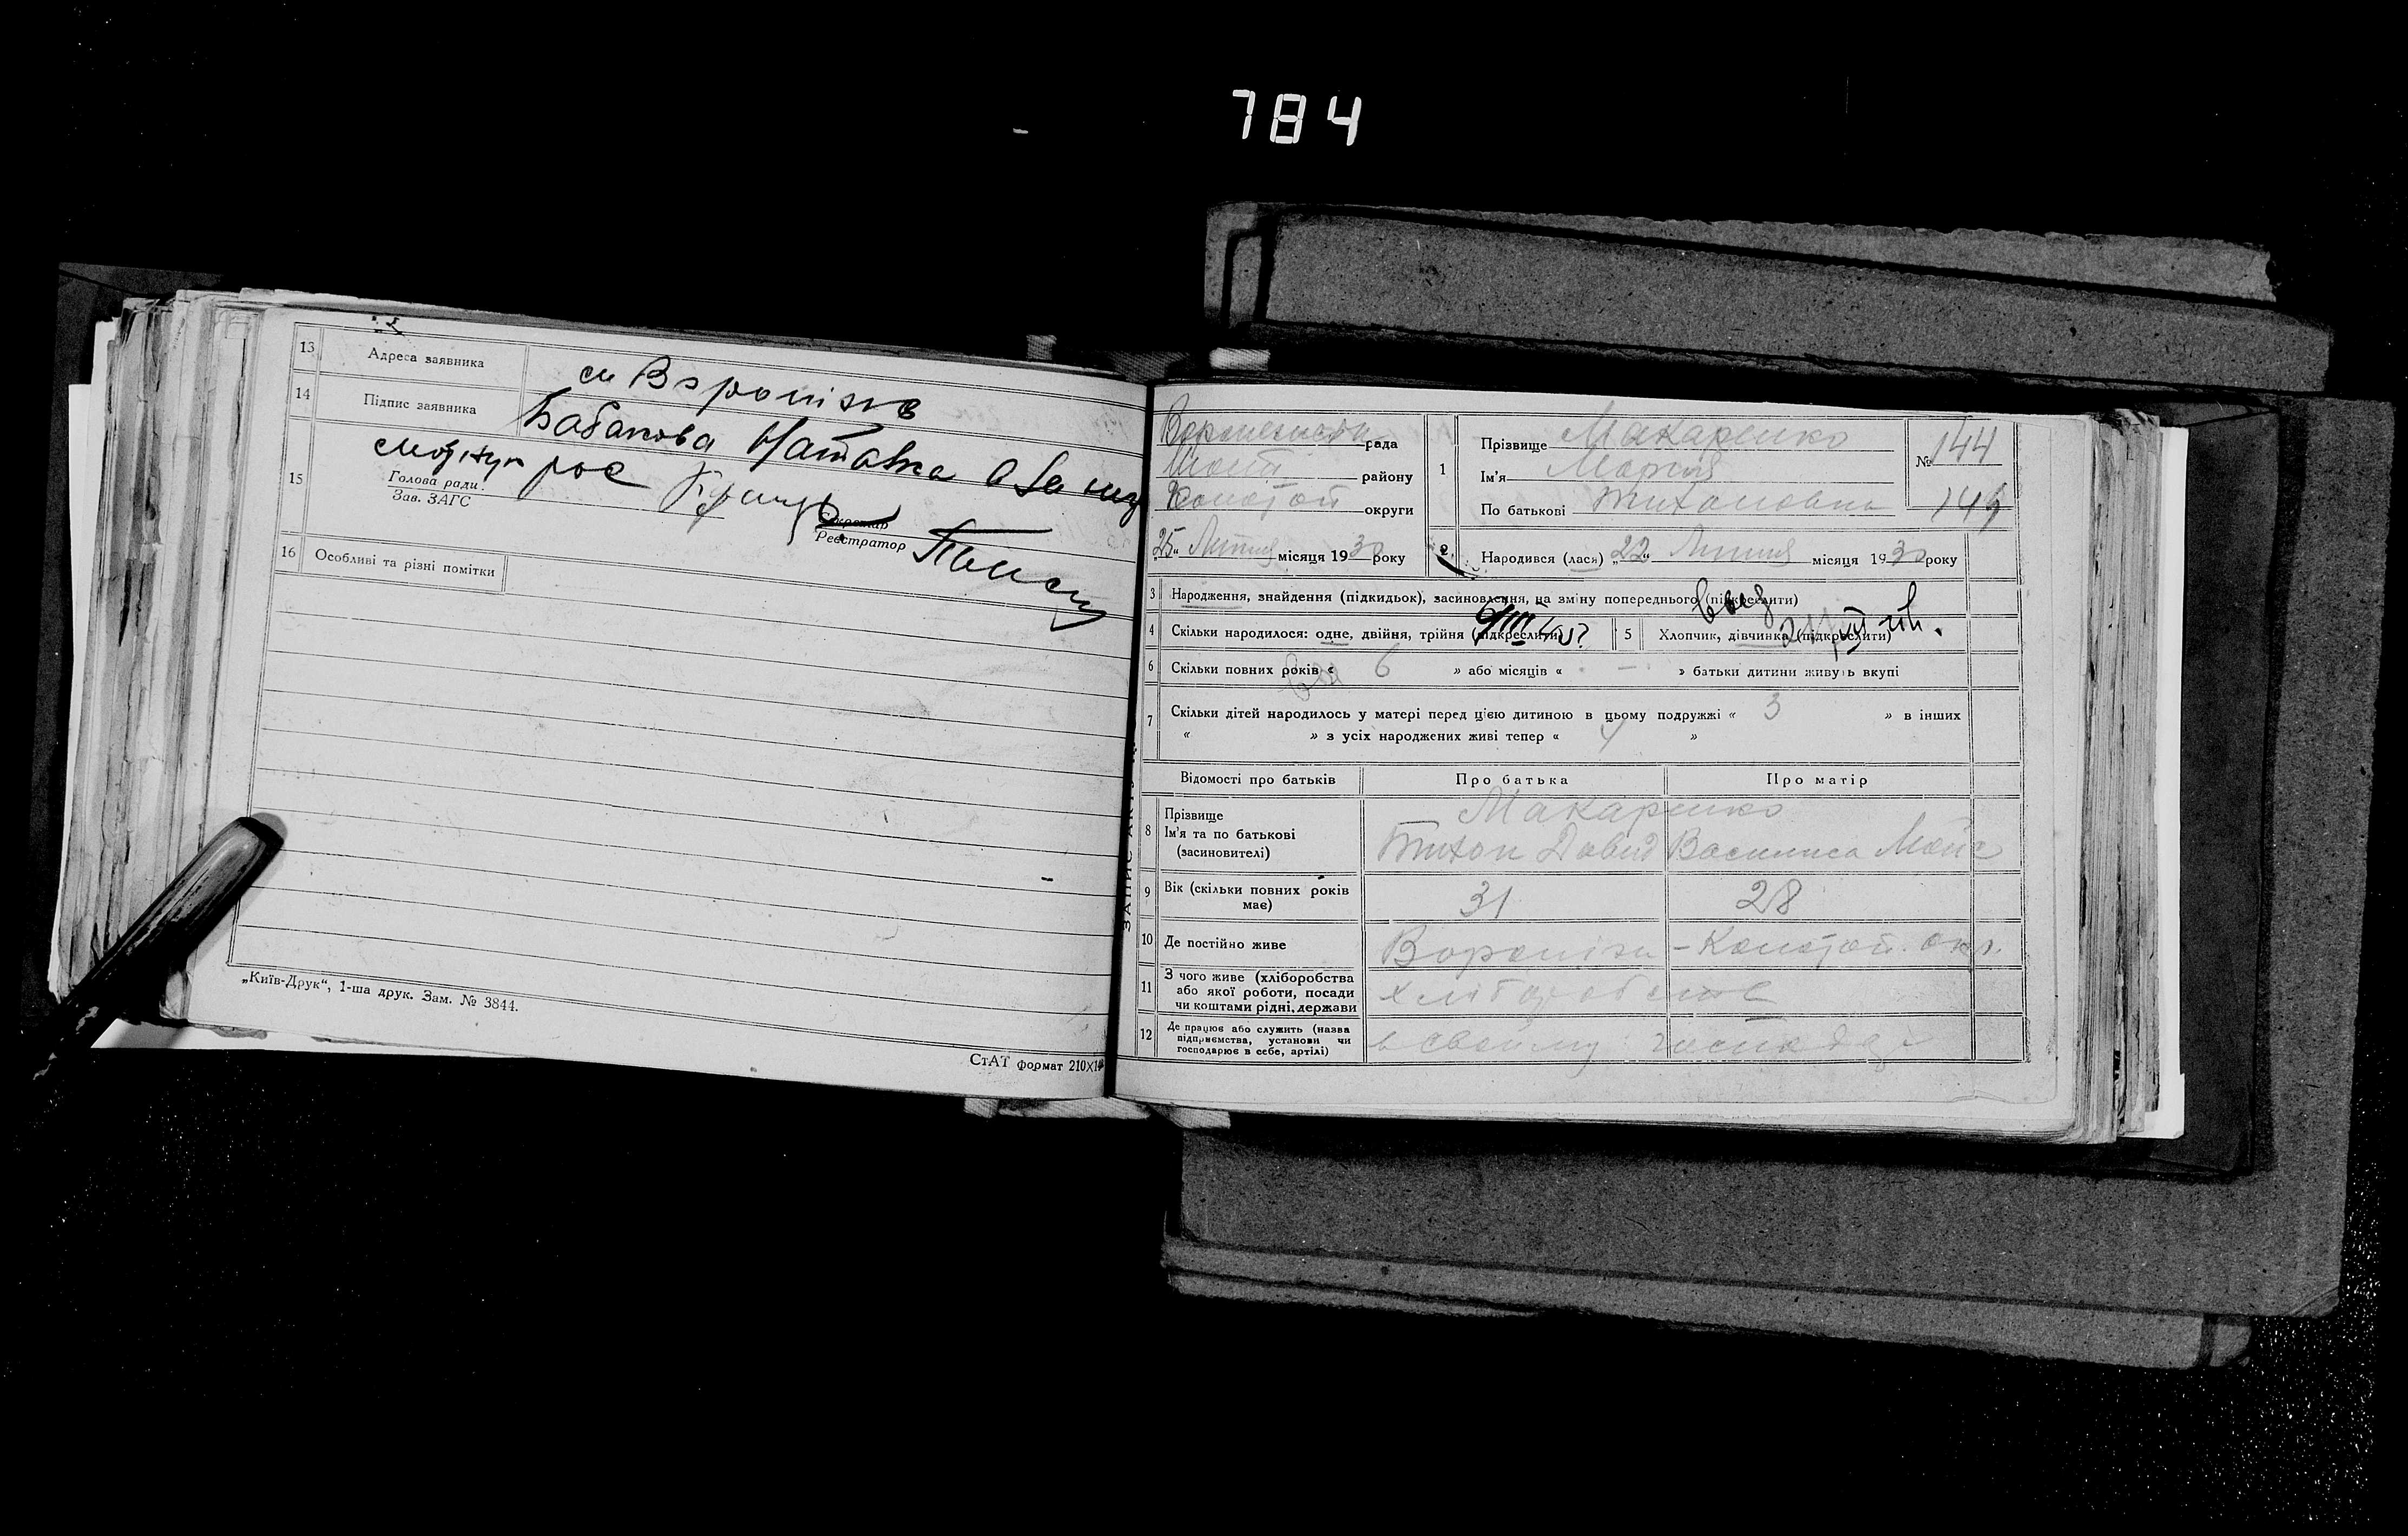 784
13 Адреса заявника см Вороніжв
14 Підпис заявника Бабакова Наталка
15 Голова ради.
Зав. ЗАГС
Секретар
Реєстратор
16 Особливі та різні помітки
„Київ-Друк“, 1-ша друк. Зам. № 3844.
СтАТ формат 210х14
рада
району
Конотоп округи
„25“ Липня місяця 1930 року
1 Прізвище Макаренко
Ім'я Мария
По батькові Тихоновна
№ 144
144
2. Народився (лася) „22“ Липня місяця 1930 року
3 Народження, знайдення (підкидьок), засиновлення, на зміну попереднього (підкреслити)
4 Скільки народилося: одне, двійня, трійня (підкреслити)
5 Хлопчик, дівчинка (підкреслити)
6 Скільки повних років « 6 » або місяців « — » батьки дитини живуть вкупі
7 Скільки дітей народилось у матері перед цією дитиною в цьому подружжі « 3 » в інших
« » з усіх народжених живі тепер « 4 »
Відомості про батьків Про батька Про матір
8 Прізвище
Ім'я та по батькові
(засиновителі)
Макаренко
Тихон Давид Василиса Мойс
9 Вік (скільки повних років
має) 31 28
10 Де постійно живе Вороніж - Конотоп. окр.
11 З чого живе (хліборобства
або якої роботи, посади
чи коштами рідні, держави
хліборобство
12 Де працює або служить (назва
підприємства, установи чи
господарює в себе, артілі)
в своєму
ЗАПИС АКТУ